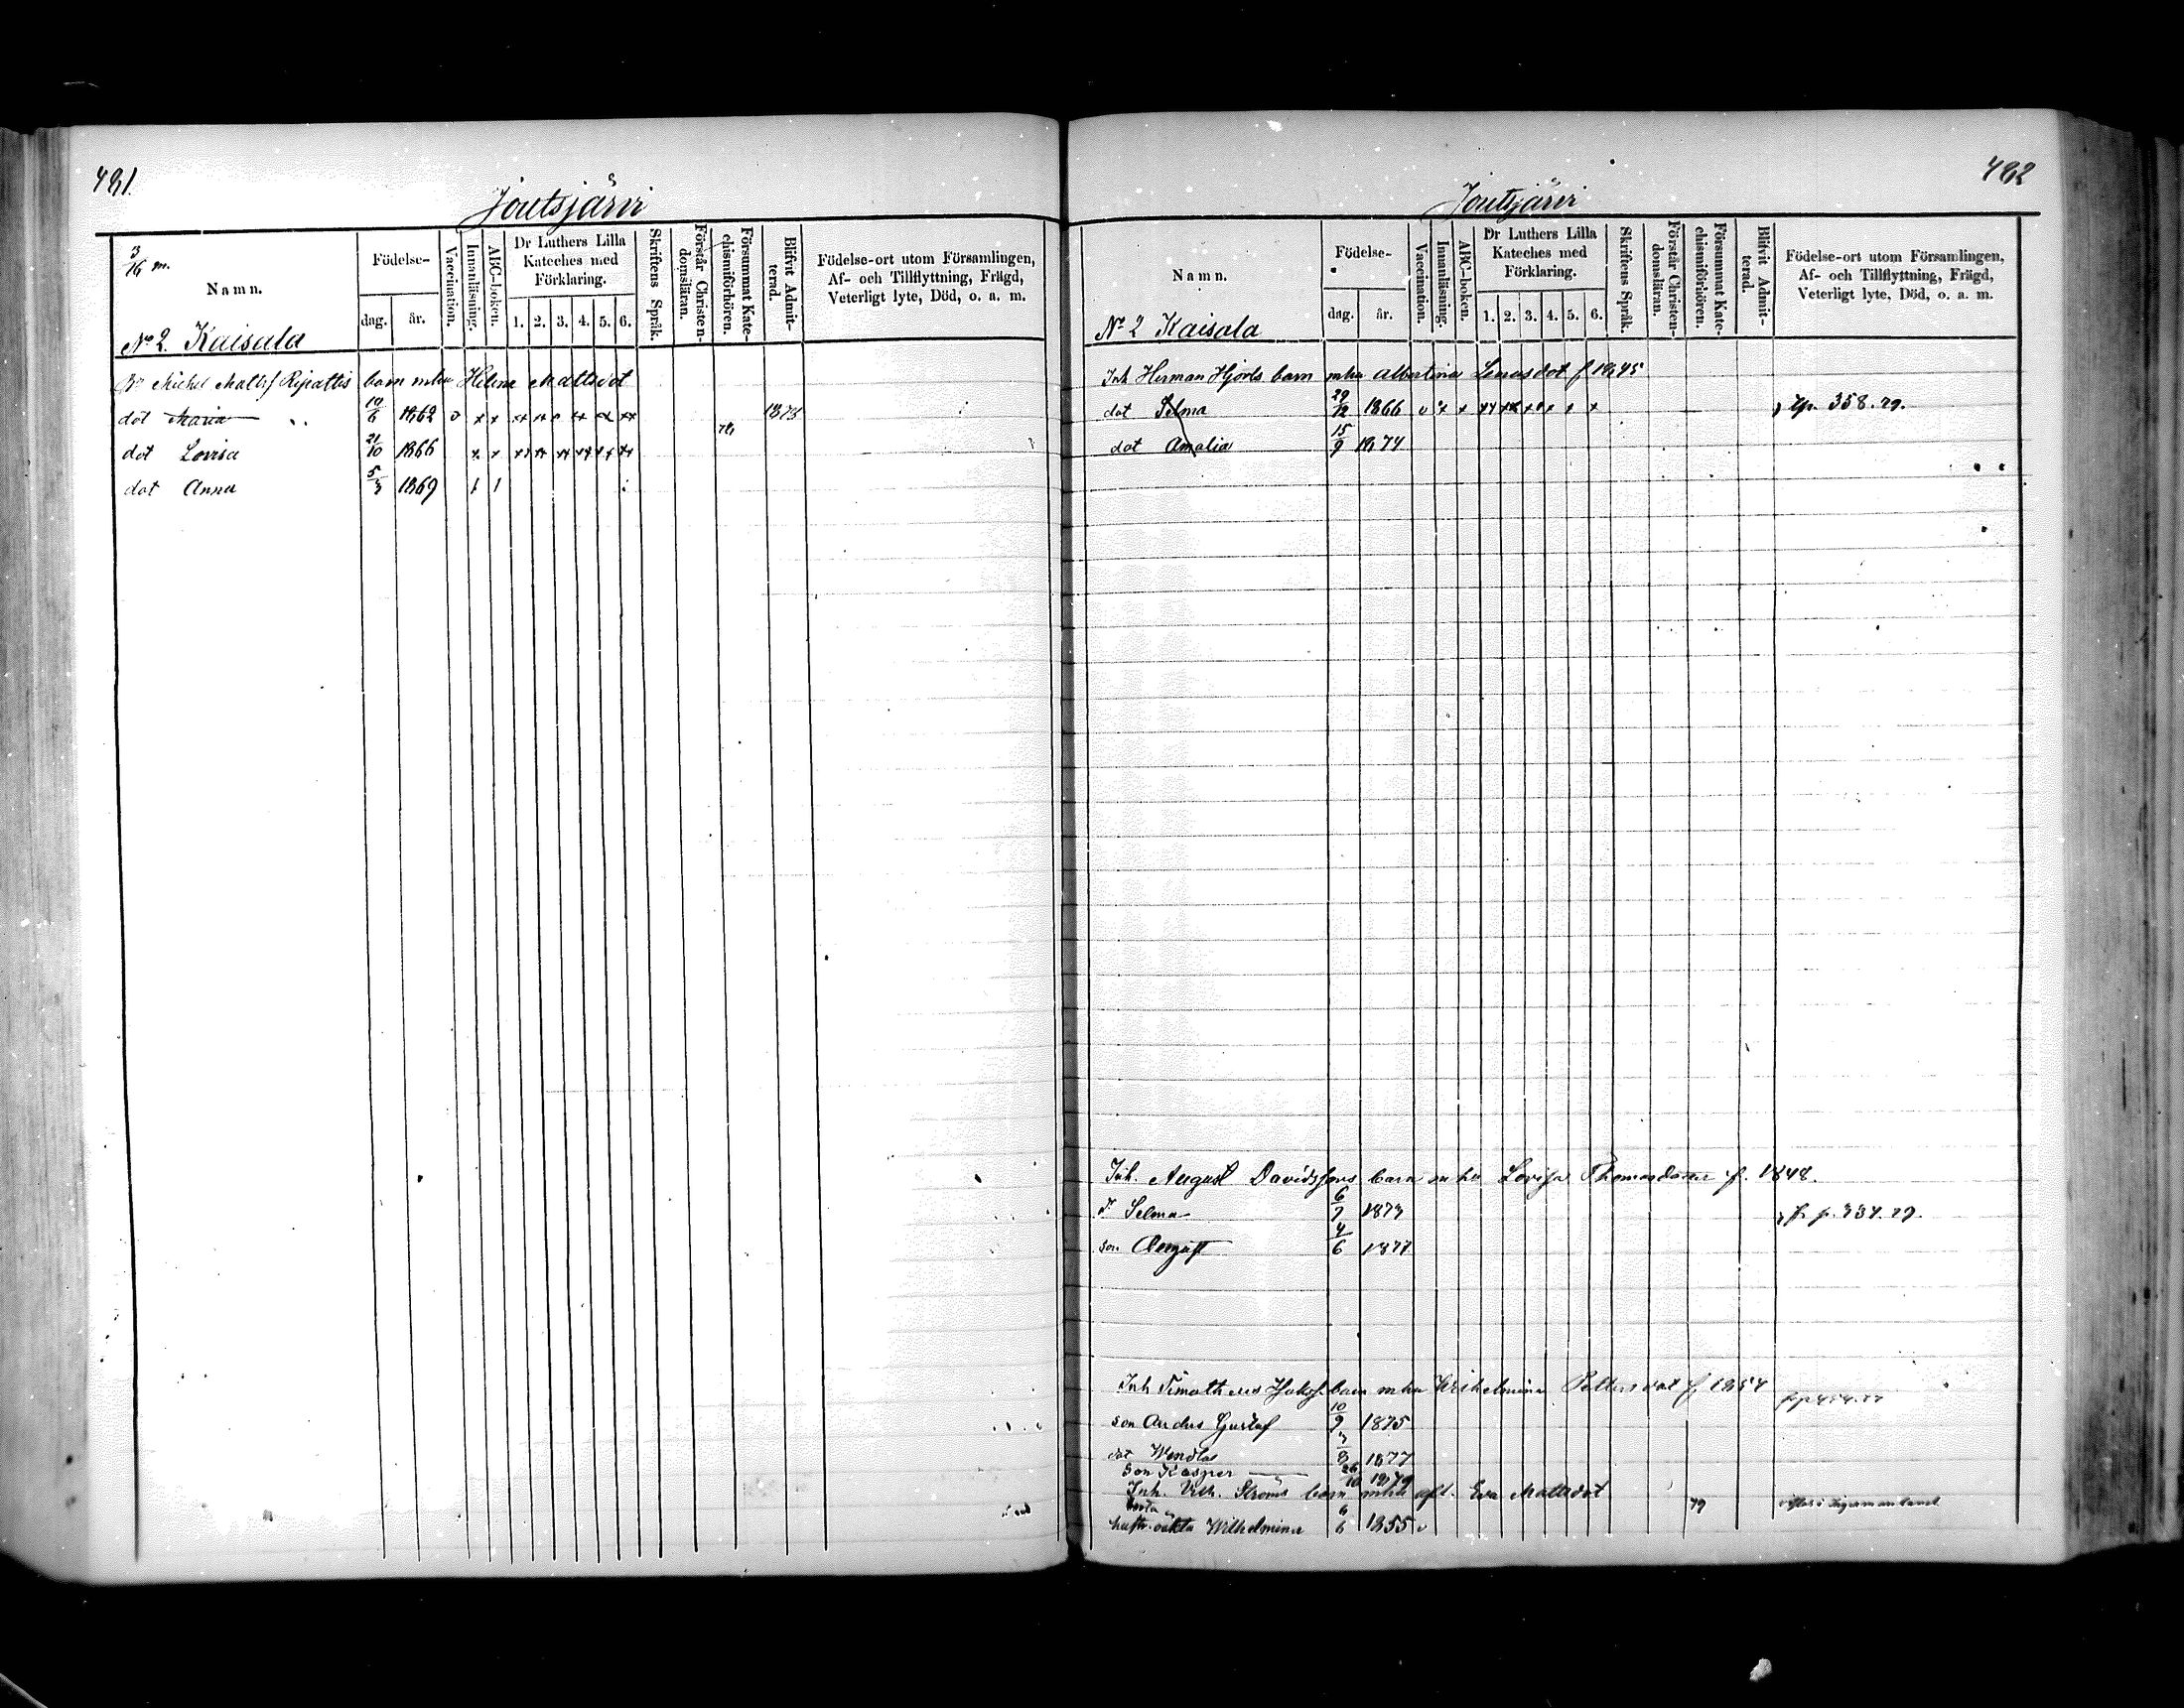 481.
Joutsjärvi
3/16 m.
Namn.
Födelse-
dag.
år.
Vaccination.
Innanläsning.
ABC-boken.
Dr Luthers Lilla
Kateches med
Förklaring.
1. 2. 3. 4. 5. 6.
Skriftens Språk.
Förstår Christen-
domsläran.
Försummat Kate-
chismiförhören.
Blifvit Admit-
terad.
Födelse-ort utom Församlingen,
Af- och Tillflyttning, Frägd,
Veterligt lyte, Död, o. a. m.
No 2. Kaisala
Michel Mattsf Ripattis barn mhu Helena Mattsdot
dot Maria 10/6 1862 1878
dot Lovisa 21/10 1866 78
dot Anna 5/3 1869
482
Joutsjärvi
Namn.
Födelse-
dag.
år.
Vaccination.
Innanläsning.
ABC-boken.
Dr Luthers Lilla
Kateches med
Förklaring.
1. 2. 3. 4. 5. 6.
Skriftens Språk.
Förstår Christen-
domsläran.
Försummat Kate-
chismiförhören.
Blifvit Admit-
terad.
Födelse-ort utom Församlingen,
Af- och Tillflyttning, Frägd,
Veterligt lyte, Död, o. a. m.
No 2 Kaisala
Inh Herman Hjorts barn mhu Albertina dot f 1845
dot Selma 29/12 1866 p. 358. 79.
dot Amalia 15/9 1874
Inh. August Davidssons barn mhu Lovisa Thomasdotter f. 1848.
d. Selma 6/7 1873 p. 334. 79.
son August 4/6 1877
Inh Timotheus barn mhu Wilhelmina Pettersdot f 1854
son Anders Gustaf 10/9 1875
dot Wendla 3/8 1877
son Kasper 26/10 1879
Inh. Vilh. Ströms barn mhu afl. Eva Mattsdot
oäkta Wilhelmina 6/6 1855 79